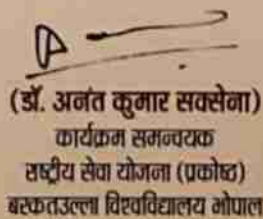 (डॉ. अनंत कुमार सक्सेना)
कार्यक्रम समन्वयक
राष्ट्रीय सेवा योजना (प्रकोष्ठ)
बरकतउल्ला विश्वविद्यालय भोपाल